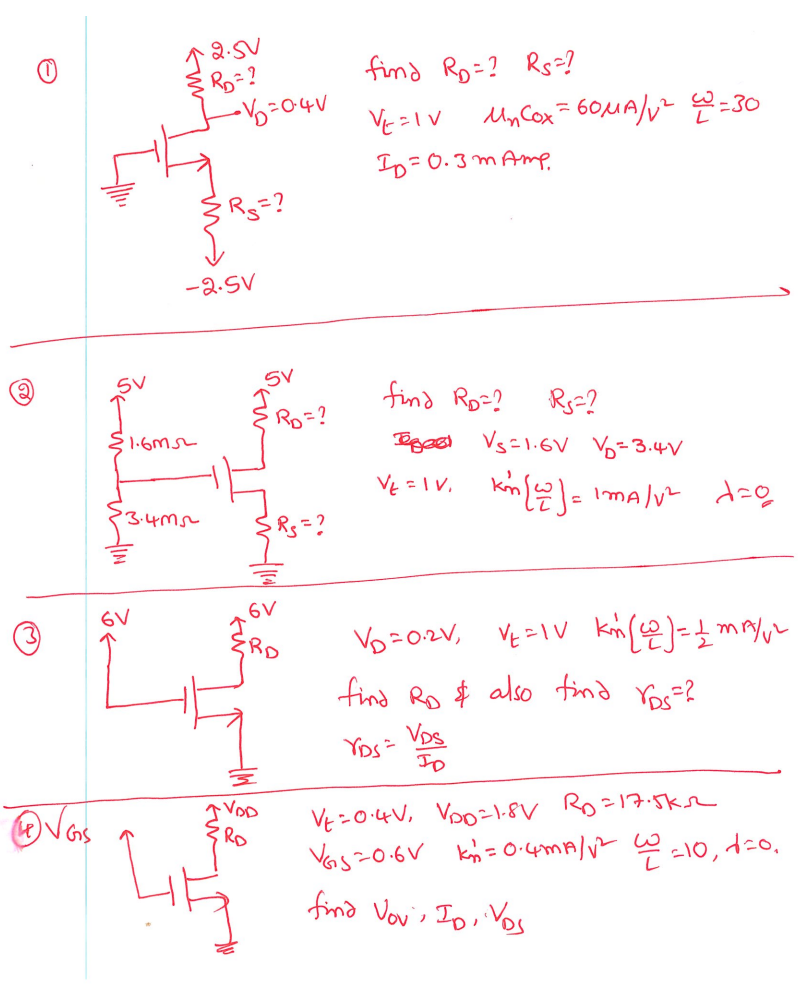 ① 2.5V
R_D=?
V_D=0.4V
R_S=?
-2.5V
find R_D=? R_S=?
V_t=1V μ_nCox=60μA/V² W/L=30
I_D=0.3mAmp.
② 5V
1.6mΩ
3.4mΩ
5V
R_D=?
R_S=?
find R_D=? R_S=?
V_S=1.6V V_D=3.4V
V_t=1V. k'n[W/L]=1mA/V² λ=0
③ 6V
6V
R_D
V_D=0.2V, V_t=1V k'n[W/L]=1/2 mA/V²
find R_D & also find r_DS=?
r_DS=V_DS/I_D
④ V_GS
V_DD
R_D
V_t=0.4V, V_DD=1.8V R_D=17.5kΩ
V_GS=0.6V k'n=0.4mA/V² W/L=10, λ=0.
find V_OV, I_D, V_DS